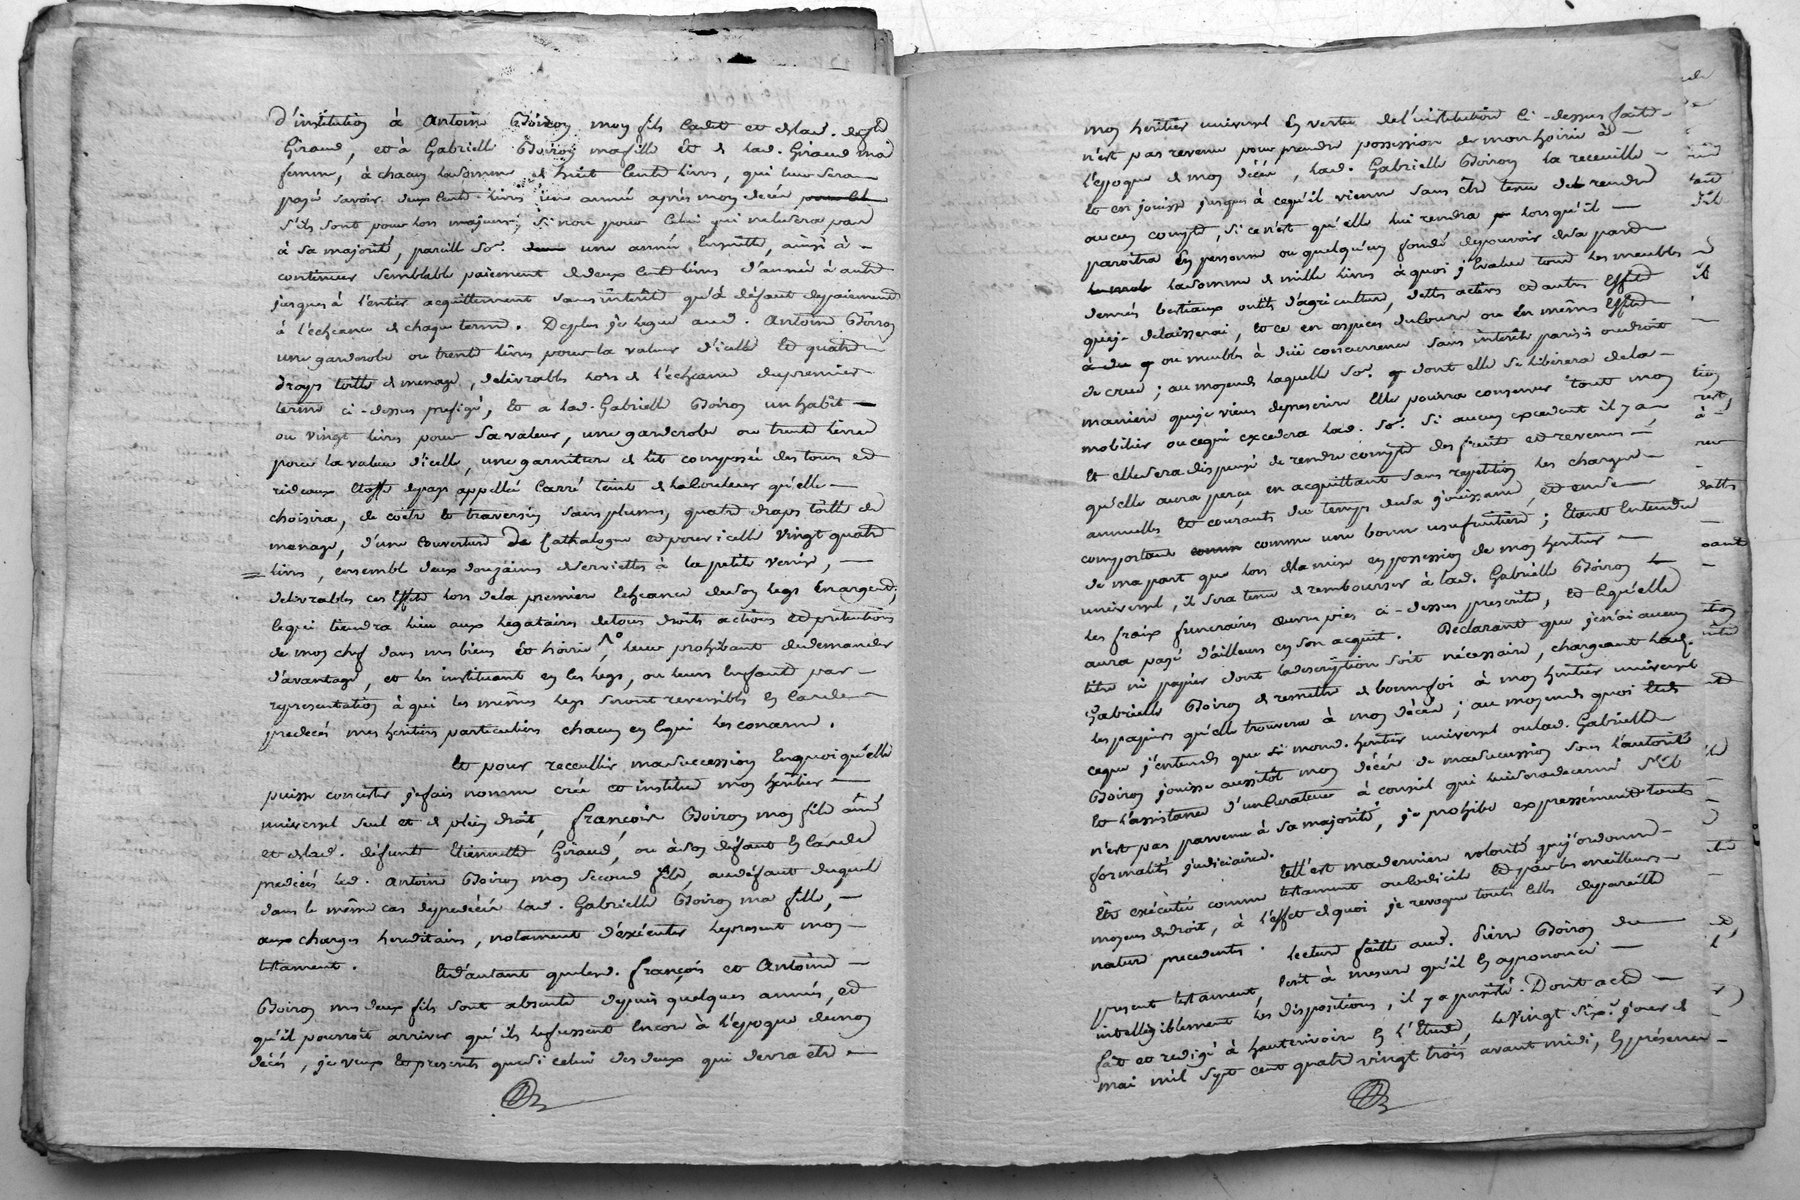 d'institution à Antoine Boiron mon fils cadet et de lad. defte
Giraud, et à Gabrielle Boiron ma fille et de lad. Giraud ma
femme, à chacun la somme de huit cents livres, qui leur sera
payé savoir deux cents livres une année après mon décés
s'ils sont pour lors majeurs, si non pour celui qui ne le sera pas
à sa majorité, pareille so.e une année ensuitte, ainsi à
continuer semblable paiement de deux cents livres d'année à autre
jusques à l'entier acquittement sans intérêts qu'à défaut de paiement
à l'echeance de chaque terme. De plus je legue aud. Antoine Boiron
une garderobe ou trente livres pour la valeur d'icelle et quatre
draps toille de menage, delivrables lors de l'echeance du premier
terme ci-dessus prefigé, et a lad. Gabrielle Boiron un habit
ou vingt livres pour sa valeur, une garderobe ou trente livres
pour la valeur d'icelle, une garniture de lit composée des tours et
rideaux etoffe de pays appellée Carré teint de la couleur qu'elle
choisira, de coëtre et traversin sans plumes, quatre draps toille de
menage, d'une couverture de Cathalogne et pour icelle vingt quatre
livres, ensemble deux douzaines de serviettes à la petite Venise,
delivrables ces effets lors de la premiere echeance de son legs en argent;
lequi tiendra lieu aux legataires de tous droits actions et pretentions
de mon chef dans mes biens et hoirie, leur prohibant de demander
d'avantage, et les instituant en ces legs, ou leurs enfants par
representation à qui les mêmes legs seront reversibles en cas de
predecés mes héritiers particuliers chacun en ce qui les concerne.
Et pour recceullir ma succession en quoi qu'elle
puisse concister je fais nomme crée et institue mon héritier
universel seul et de plein droit, françois Boiron mon fils ainé
et de lad. défunte Etiennette Giraud, ou à son défaut en cas de
predécés led. Antoine Boiron mon second fils, au défaut duquel
dans le même cas de predécés lad. Gabrielle Boiron ma fille,
aux charges hereditaires, notament d'éxécuter le present mon
testament. Et d'autant que lesd. françois et Antoine
Boiron mes deux fils sont absents depuis quelques années, et
qu'il pourroit arriver qu'ils le fussent encore à l'epoque de mon
décés, je veux et prescrits que si celui des deux qui devra etre
mon héritier universel en vertu de l'institution ci-dessus faite
n'est pas revenu pour prendre possession de mon hoirie à
l'epoque de mon décés, lad. Gabrielle Boiron la receuille
et en jouisse jusques à ce qu'il vienne sans être tenue de rendre
aucun compte, si ce n'est qu'elle lui rendra lorsqu'il
paroitra en personne ou quelqu'un fondé de pouvoir de sa part
la somme de mille livres à quoi j'evalue tous les meubles
denrés bestiaux outils d'agriculture, dettes actives et autres effets
que je delaisserai, et ce en espèces de cours ou en mêmes effets
ou meubles à düe concurrence sans intérêts parisis ou droit
de crüe; au moyend de laquelle so.e dont elle se liberera de la
maniere que je viens de prescrire elle pourra conserver tout mon
mobilier ou ce qui excedera lad. so.e si aucun excedent il y a,
et elle sera dispensée de rendre compte des fruits et revenus
qu'elle aura perçu en acquittant sans repetition les charges
annuelles et courants du temps de sa jouissance, et en se
comportant comme une bonne usufruitière; étant entendu
de ma part que lors de la mise en possession de mon héritier
universel, il sera tenu de rembourser à lad. Gabrielle Boiron
les fraix funeraires œuvres pies ci-dessus prescrites, et ce qu'elle
aura payé d'ailleurs en son acquit. Déclarant que je n'ai aucun
titre ni papier dont la description soit nécessaire, chargeant lad.
Gabrielle Boiron de remettre de bonne foi à mon héritier universel
les papiers qu'elle trouvera à mon décés; au moyend de quoi
ce que j'entends que si mond. héritier universel ou lad. Gabrielle
Boiron jouisse aussitôt mon décés de ma succession sous l'autorité
et l'assistance d'un Curateur à conseil qui lui sera decerné s'il
n'est pas parvenu à sa majorité, je prohibe expressément toutes
formalités judiciaires. Tell'est ma derniere volonté que j'ordonne
Etre exécutée comme testament ou codicile et par les meilleurs
moyens de droit, à l'effet de quoi je revoque toutes celles de pareille
nature precedentes. Lecture faitte aud. Pierre Boiron du
present testament, écrit à mesure qu'il en a prononcé
intelligiblement les dispositions, il y a persisté. Dont acte
fait et redigé à hauterivoire en l'Etude, le vingt six.e jour de
mai mil sept cent quatre vingt trois avant midi, en présence